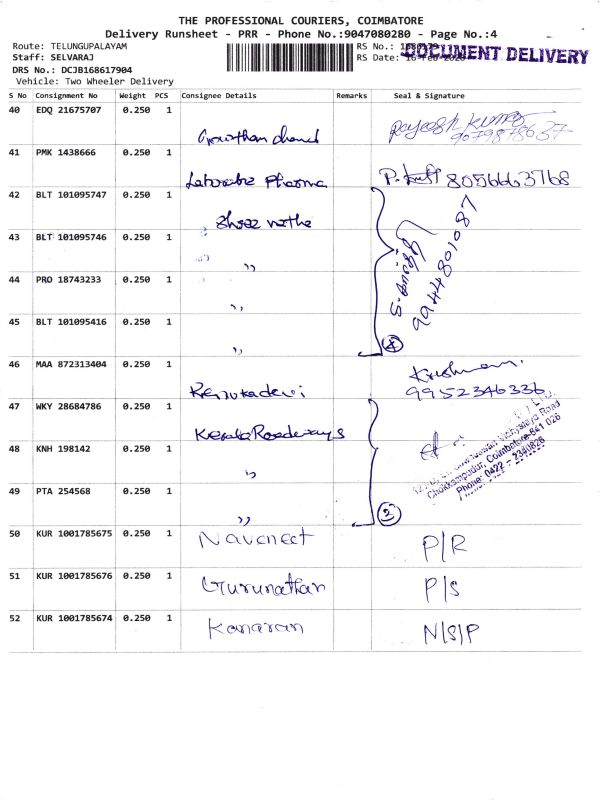 THE PROFESSIONAL COURIERS, COIMBATORE
Delivery Runsheet - PRR - Phone No.:9047080280 - Page No.:4
Route: TELUNGUPALAYAM
RS No.:
DOCUMENT DELIVERY
Staff: SELVARAJ
RS Date:
DRS No.: DCJB168617904
Vehicle: Two Wheeler Delivery
S No Consignment No Weight PCS Consignee Details Remarks Seal & Signature
40 EDQ 21675707 0.250 1
Gowtham chand
Rajesh Kumar
9079878637
41 PMK 1438666 0.250 1
Pharma
8056663768
42 BLT 101095747 0.250 1
Shree nathe
43 BLT 101095746 0.250 1
"
9944801087
44 PRO 18743233 0.250 1
"
45 BLT 101095416 0.250 1
"
4
46 MAA 872313404 0.250 1
Renukadevi
Krishnan.
9952346336
47 WKY 28684786 0.250 1
Kerala Roadways
48 KNH 198142 0.250 1
"
Chokkampudur, Coimbatore-641 026
Phone: 0422 - 2340826
49 PTA 254568 0.250 1
"
2
50 KUR 1001785675 0.250 1
Navaneet
P/R
51 KUR 1001785676 0.250 1
Gurunathan
P/S
52 KUR 1001785674 0.250 1
Kanaran
N/S/P